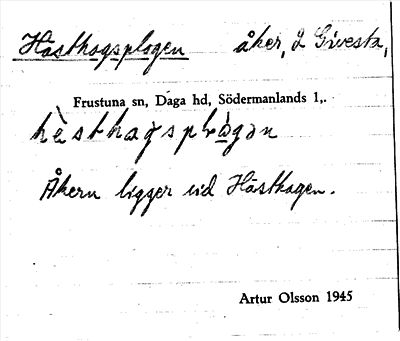 Hästhagsplogen åker, L Givesta,
Frustuna sn, Daga hd, Södermanlands l,.
hèsthagsplògən
Åkern ligger vid Hästhagen.
Artur Olsson 1945